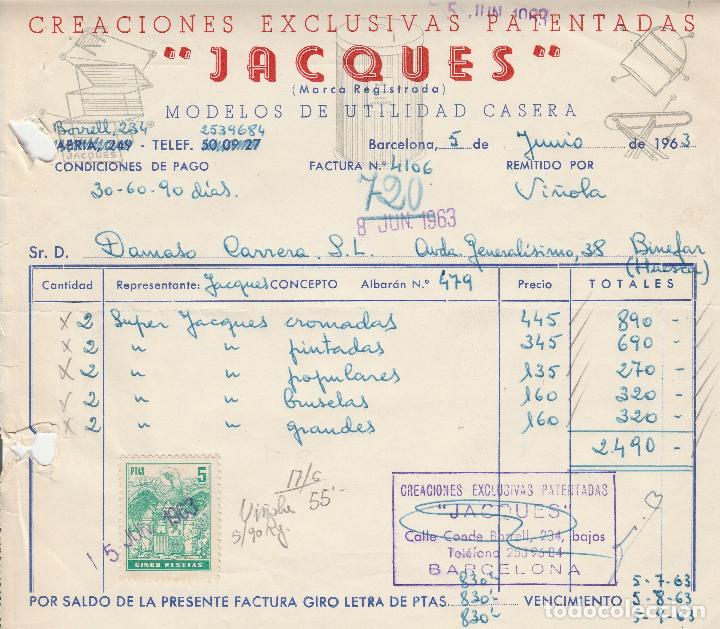 5 JUN 1963
CREACIONES EXCLUSIVAS PATENTADAS
"JACQUES"
(Marca Registrada)
MODELOS DE UTILIDAD CASERA
JACQUES
Borrell, 234 2539684
249 - TELEF. 50.09.27 Barcelona, 5 de Junio de 1963
CONDICIONES DE PAGO FACTURA N.º 4106 REMITIDO POR
30-60-90 días. 720 Viñola
8 JUN. 1963
Sr. D. Damaso Carrera S.L. Avda Generalísimo, 38 Binefar
(Huesca)
Cantidad Representante: Jacques CONCEPTO Albarán N.º 479 Precio TOTALES
x 2 Super Jacques cromadas 445 890 -
x 2 " " pintadas 345 690 -
x 2 " " populares 135 270 -
x 2 " " bruselas 160 320 -
x 2 " " grandes 160 320 -
2.490 -
PTAS 5
15 JUN. 1963
CINCO PESETAS
17/6
Viñola 55'-
5/90
CREACIONES EXCLUSIVAS PATENTADAS
"JACQUES"
Calle Conde Borrell, 234, bajos
Teléfono 253 96 84
BARCELONA
830'- 5-7-63
POR SALDO DE LA PRESENTE FACTURA GIRO LETRA DE PTAS. 830'- VENCIMIENTO 5-8-63
830'- 5-9-63
todocoleccion